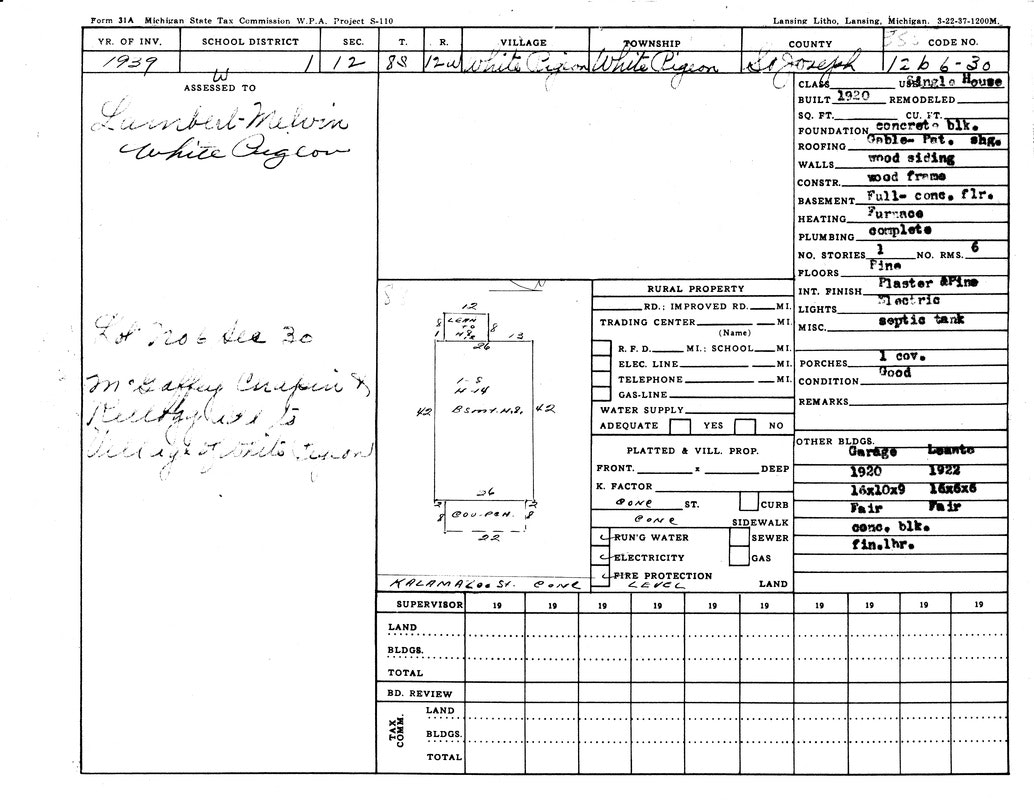 Form 31A Michigan State Tax Commission W.P.A. Project S-110 Lansing Litho, Lansing, Michigan. 3-22-37-1200M.
YR. OF INV. SCHOOL DISTRICT SEC. T. R. VILLAGE TOWNSHIP COUNTY CODE NO.
1939 1 12 8S 12W White Pigeon White Pigeon St Joseph 12 b 6-30
W
ASSESSED TO
Lambert-Melvin
White Pigeon
Lot No 6 Sec 30
McGaffey Chapin &
add to
Village of White Pigeon
CLASS USE Single House
BUILT 1920 REMODELED
SQ. FT. CU. FT.
FOUNDATION concrete blk.
ROOFING Gable- Pat. shg.
WALLS wood siding
CONSTR. wood frame
BASEMENT Full- conc. flr.
HEATING Furnace
PLUMBING complete
NO. STORIES 1 NO. RMS. 6
FLOORS Pine
INT. FINISH Plaster &Pine
LIGHTS Electric
MISC. septic tank
PORCHES 1 cov.
CONDITION Good
REMARKS
OTHER BLDGS.
Garage Leanto
1920 1922
16x10x9 16x6x6
Fair Fair
conc. blk.
fin.lbr.
12
8 LEAN TO 8
1 26 13
1-S
H-14
42 Bsmt. 42
26
2 2
8 COV-PCH. 8
22
KALAMAZOO ST. CONC
RURAL PROPERTY
RD.; IMPROVED RD. MI.
TRADING CENTER MI.
(Name)
R. F. D. MI.; SCHOOL MI.
ELEC. LINE MI.
TELEPHONE MI.
GAS-LINE
WATER SUPPLY
ADEQUATE YES NO
PLATTED & VILL. PROP.
FRONT. x DEEP
K. FACTOR
CONC ST. CURB
CONC SIDEWALK
RUN'G WATER SEWER
ELECTRICITY GAS
FIRE PROTECTION
LEVEL LAND
SUPERVISOR 19 19 19 19 19 19 19 19 19 19
LAND
BLDGS.
TOTAL
BD. REVIEW
TAX COMM.
LAND
BLDGS.
TOTAL